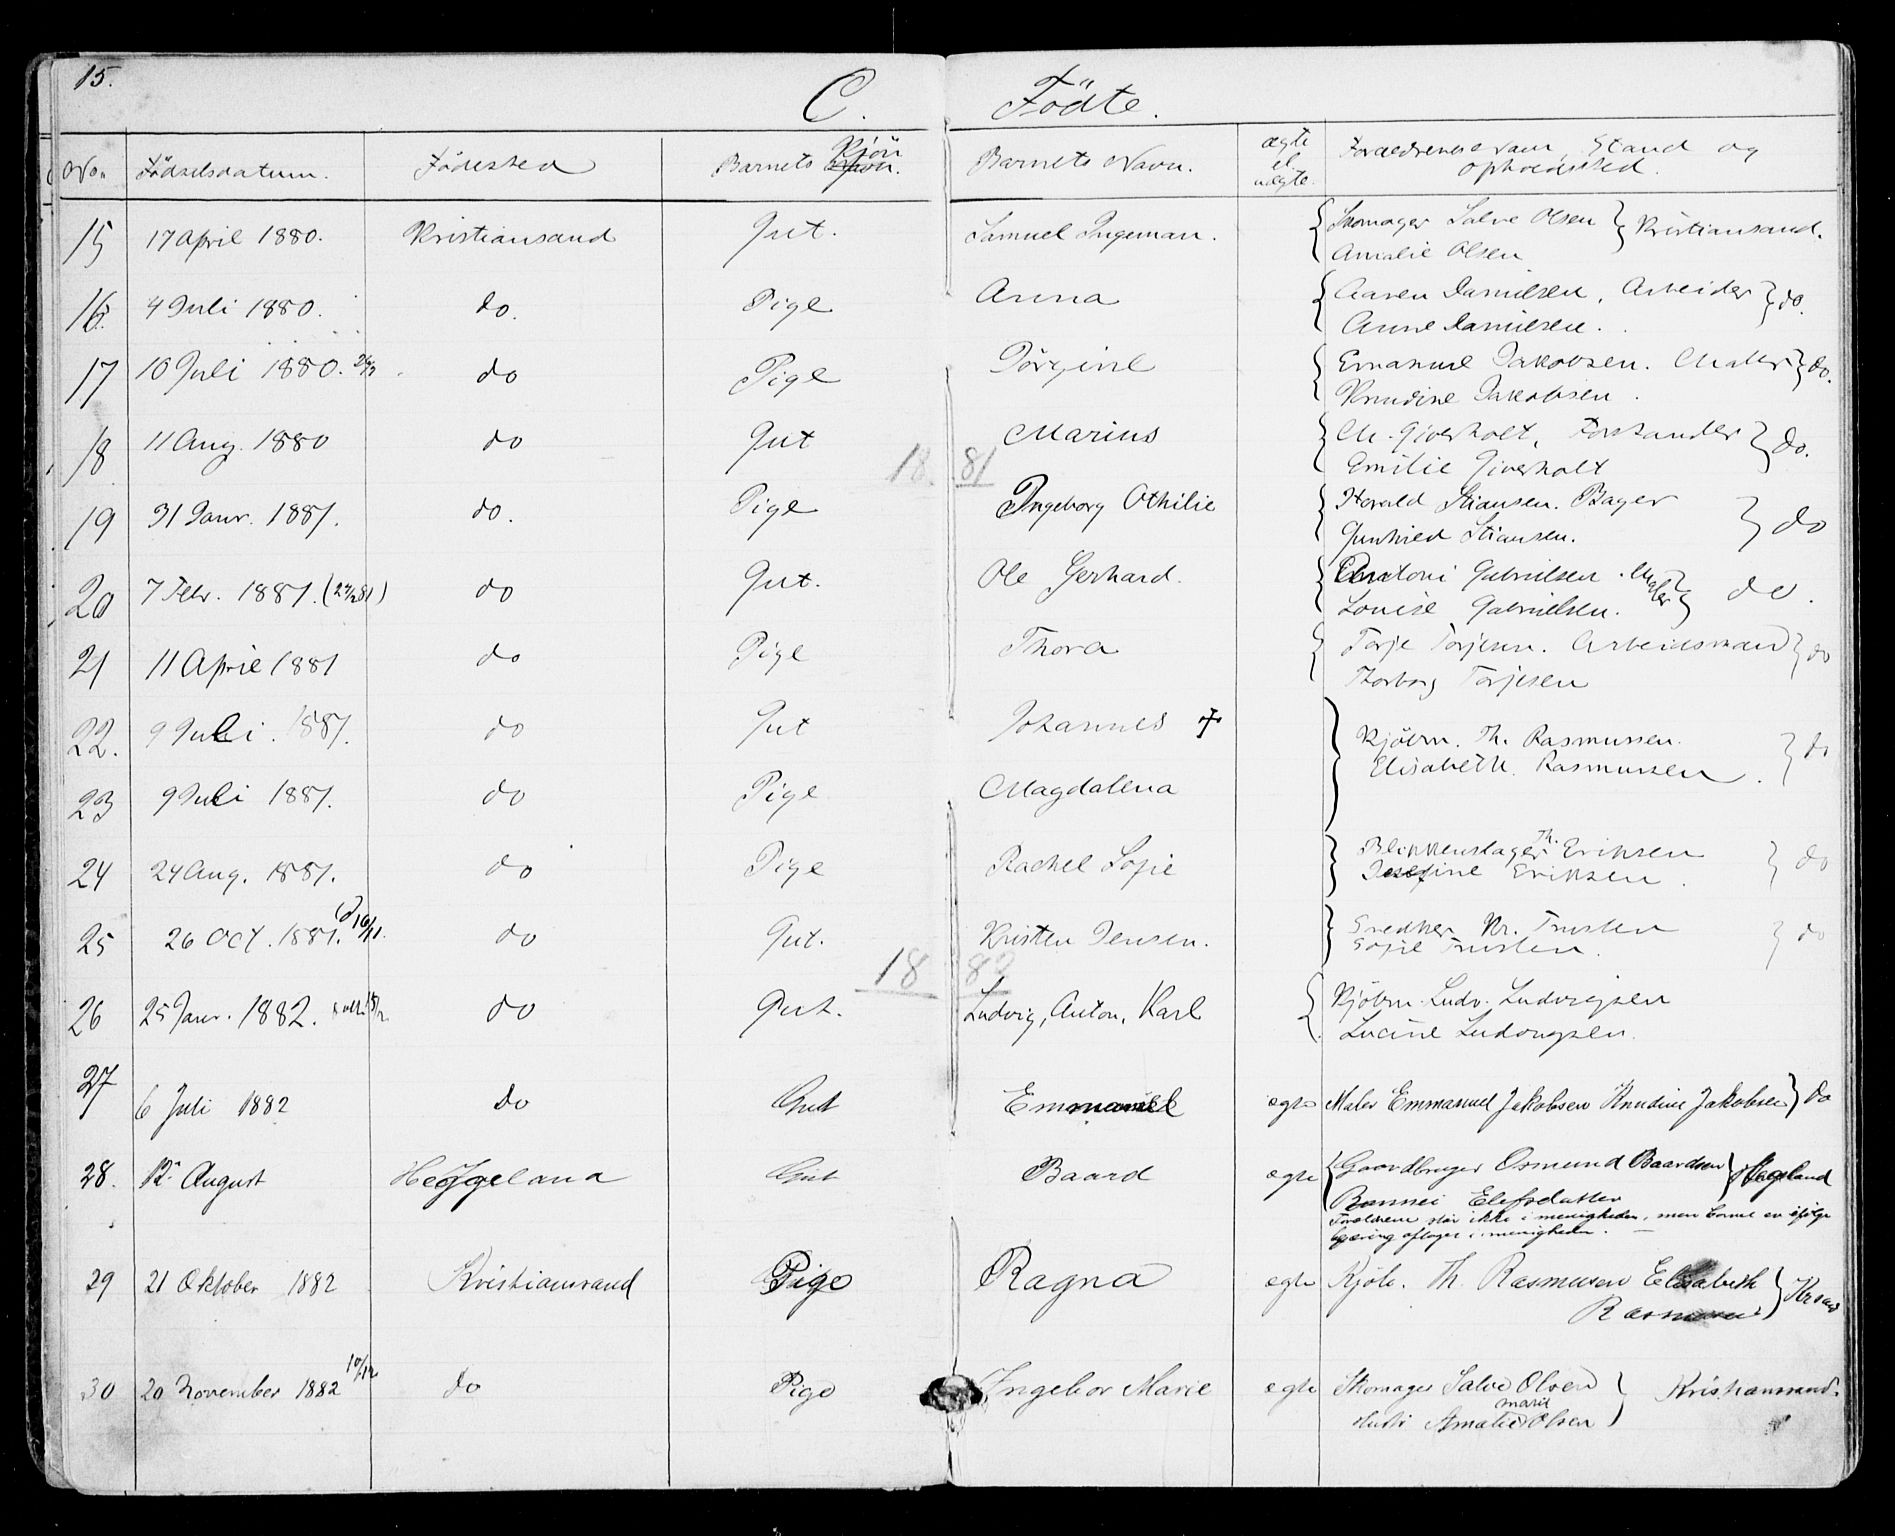 15.
C. Födte.
No. Födselsdatum. Födested Barnets Kjön Barnets Navn. ægte el uægte. Forældrenes Navn, Stand og opholdssted.
15 17 April 1880. Kristiansand Gut. Samuel Ingeman. Skomager Salve Olsen Kristiansand.
Amalie Olsen
16. 4 Juli 1880. do. Pige Anna Aanen Danielsen, Arbeider do.
Anne Danielsen.
17 10 Juli 1880. do Pige Törgine Emanuel Jakobsen. Maler do.
Knudine Jakobsen.
18 11 Aug. 1880 do Gut Marius M. Giverholt, Forstander do.
Emilie Giverholt
18 81
19 31 Janr. 1881. do. Pige Ingeborg Othilie Harald Stiansen. Bager do
Gunhild Stiansen.
20 7 Febr. 1881. do Gut. Ole Gerhard. Antoni Gabrielsen. Maler do.
Louise Gabrielsen.
21 11 April 1881 do Pige Thora Torje Torjesen. Arbeidsmand do
Thorborg Torjesen
22. 9 Juli. 1881. do Gut Johannes † Kjöbm. Th. Rasmussen.
Elisabeth Rasmussen. do
23 9 Juli 1881. do Pige Magdalena
24 24 Aug. 1881. do Pige Rachel Sofie Blikkenslager Th. Eriksen do
Josefine Eriksen.
25 26 Oct. 1881. do Gut. Kristen Jensen. Snedker Kr. Trusten do
Sofie Trusten.
18 82
26 25 Janr. 1882. do Gut. Ludvig, Anton, Karl Kjöbm. Ludv. Ludvigsen
Lucine Ludvigsen.
27 6 Juli 1882 do Gut Emmanuel ægte Maler Emmanuel Jakobsen Knudine Jakobsen do
28. 12 August Hæggeland Gut Baard ægte Gaardbruger Osmund Baardsen Hægeland
Elefsdatter
Forældrene står ikke i menigheden, men barnet er ifølge
begæring optaget i menigheden.
29 21 Oktober 1882 Kristiansand Pige Ragna ægte Kjöb. Th. Rasmusen Elisabeth Krsand
Rasmusen
30 20 November 1882 10/12 do Pige Ingebor Marie ægte Skomager Salve Olsen Kristiansand.
Hustr Amalie Marie Olsen